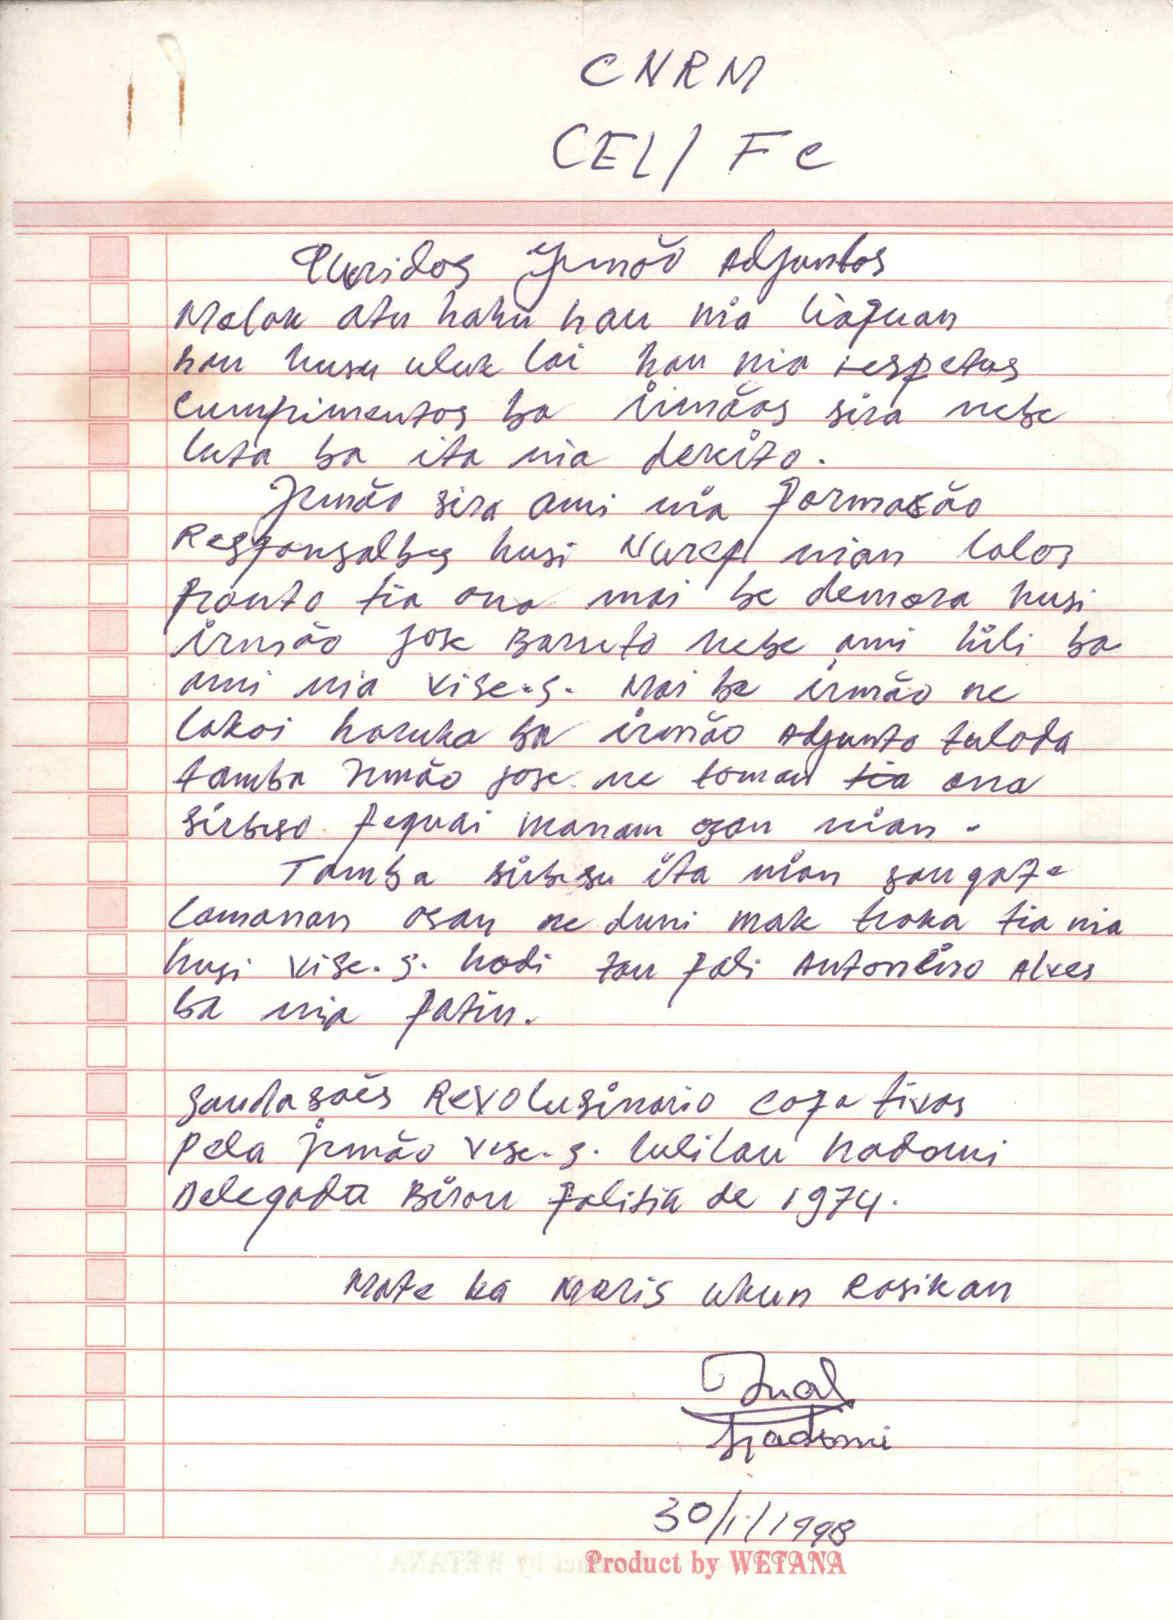 CNRM
CEL/FC
Queridos Irmão Adjuntos
Molok atu hahu hau nia liafuan
hau husu uluk lai hau nia respetus
Cumprimentos ba irmãos sira nebe
luta ba ita nia dereito.
Irmão sira ami nia formasão
Responsalbes husi Nurep nian lolos
pronto tia ona mai be demora husi
irmão Jose Barreto nebe ami hili ba
ami nia Vise.s. Mai be irmão ne
lakoi haruka ba irmão Adjunto Tuloda
tamba Irmão Jose ne toman tia ona
sirbeso fequai manam osan nian.
Tamba sirbisu ita nian
lamanan osan ne duni mak troka tia nia
husi Vise.s. hodi tau fali Antoninro Alves
ba nia fatin.
Saudasões Revolusinario
Pela Irmão Vise.s. Lulilau hadomi
Delegadu Birou Politik de 1974.
Mate ka Moris Ukun Rasikan
hadomi
30/1/1998
Product by WETANA